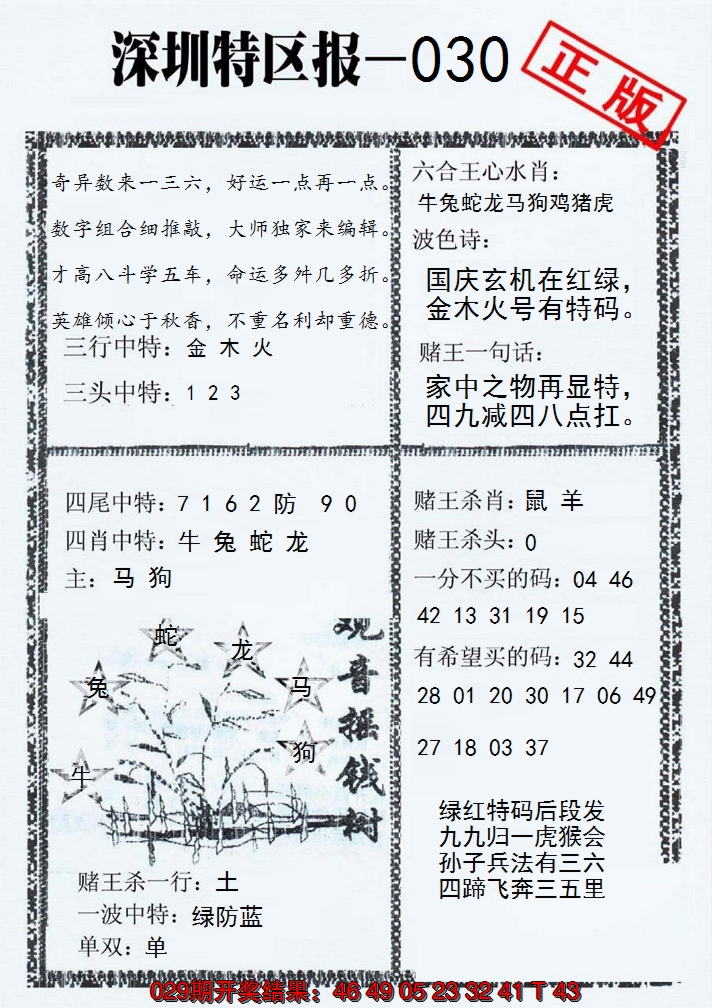 深圳特区报—030
正版
奇异数来一三六，好运一点再一点。
数字组合细推敲，大师独家来编辑。
才高八斗学五车，命运多舛几多折。
英雄倾心于秋香，不重名利却重德。
三行中特：金 木 火
三头中特：1 2 3
六合王心水肖：
牛兔蛇龙马狗鸡猪虎
波色诗：
国庆玄机在红绿，
金木火号有特码。
赌王一句话：
家中之物再显特，
四九减四八点扛。
四尾中特：7 1 6 2 防 9 0
四肖中特：牛 兔 蛇 龙
主：马 狗
蛇
龙
兔
马
狗
牛
观音摇钱树
赌王杀一行：土
一波中特：绿防蓝
单双：单
赌王杀肖：鼠 羊
赌王杀头：0
一分不买的码：04 46
42 13 31 19 15
有希望买的码：32 44
28 01 20 30 17 06 49
27 18 03 37
绿红特码后段发
九九归一虎猴会
孙子兵法有三六
四蹄飞奔三五里
029期开奖结果：46 49 05 23 32 41 T 43